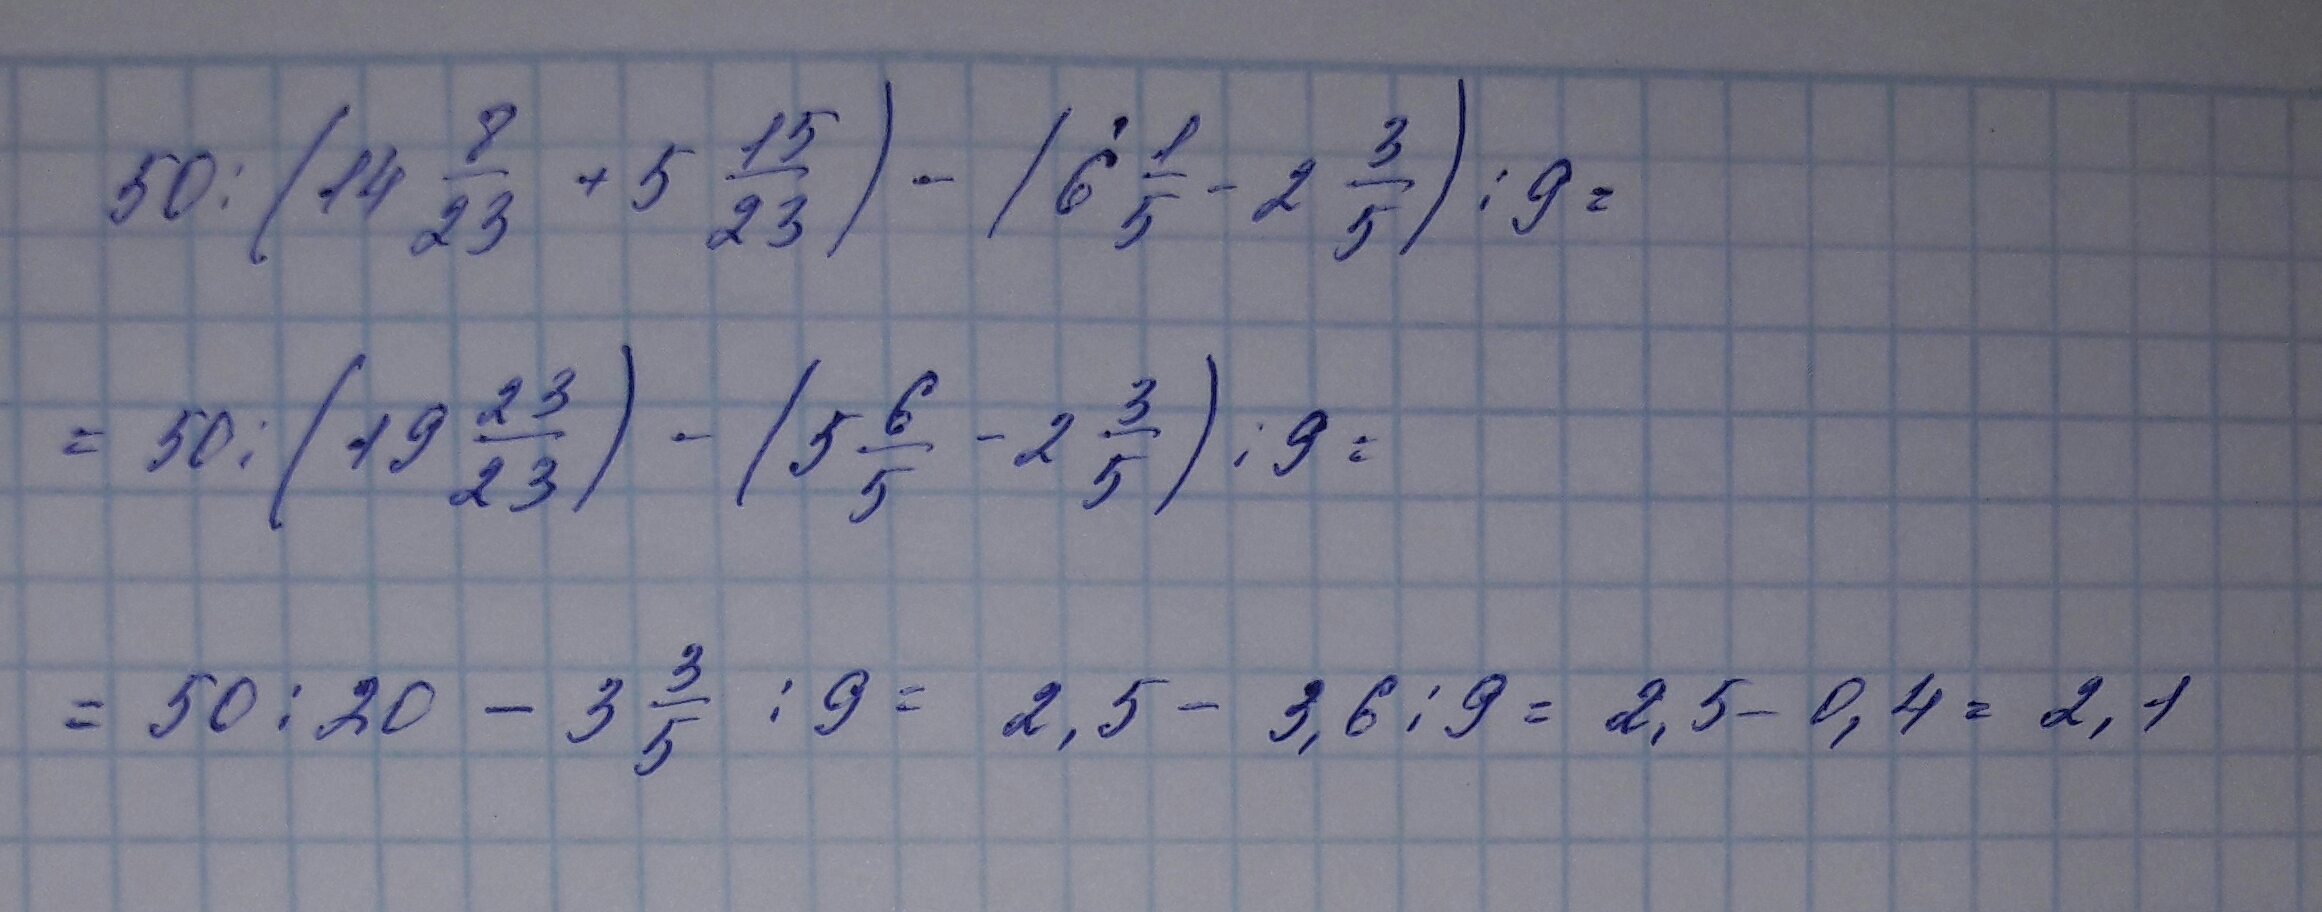 50:(14 8/23 + 5 15/23) - (6 1/5 - 2 3/5) : 9 =
= 50:(19 23/23) - (5 6/5 - 2 3/5) : 9 =
= 50:20 - 3 3/5 : 9 = 2,5 - 3,6:9 = 2,5 - 0,4 = 2,1